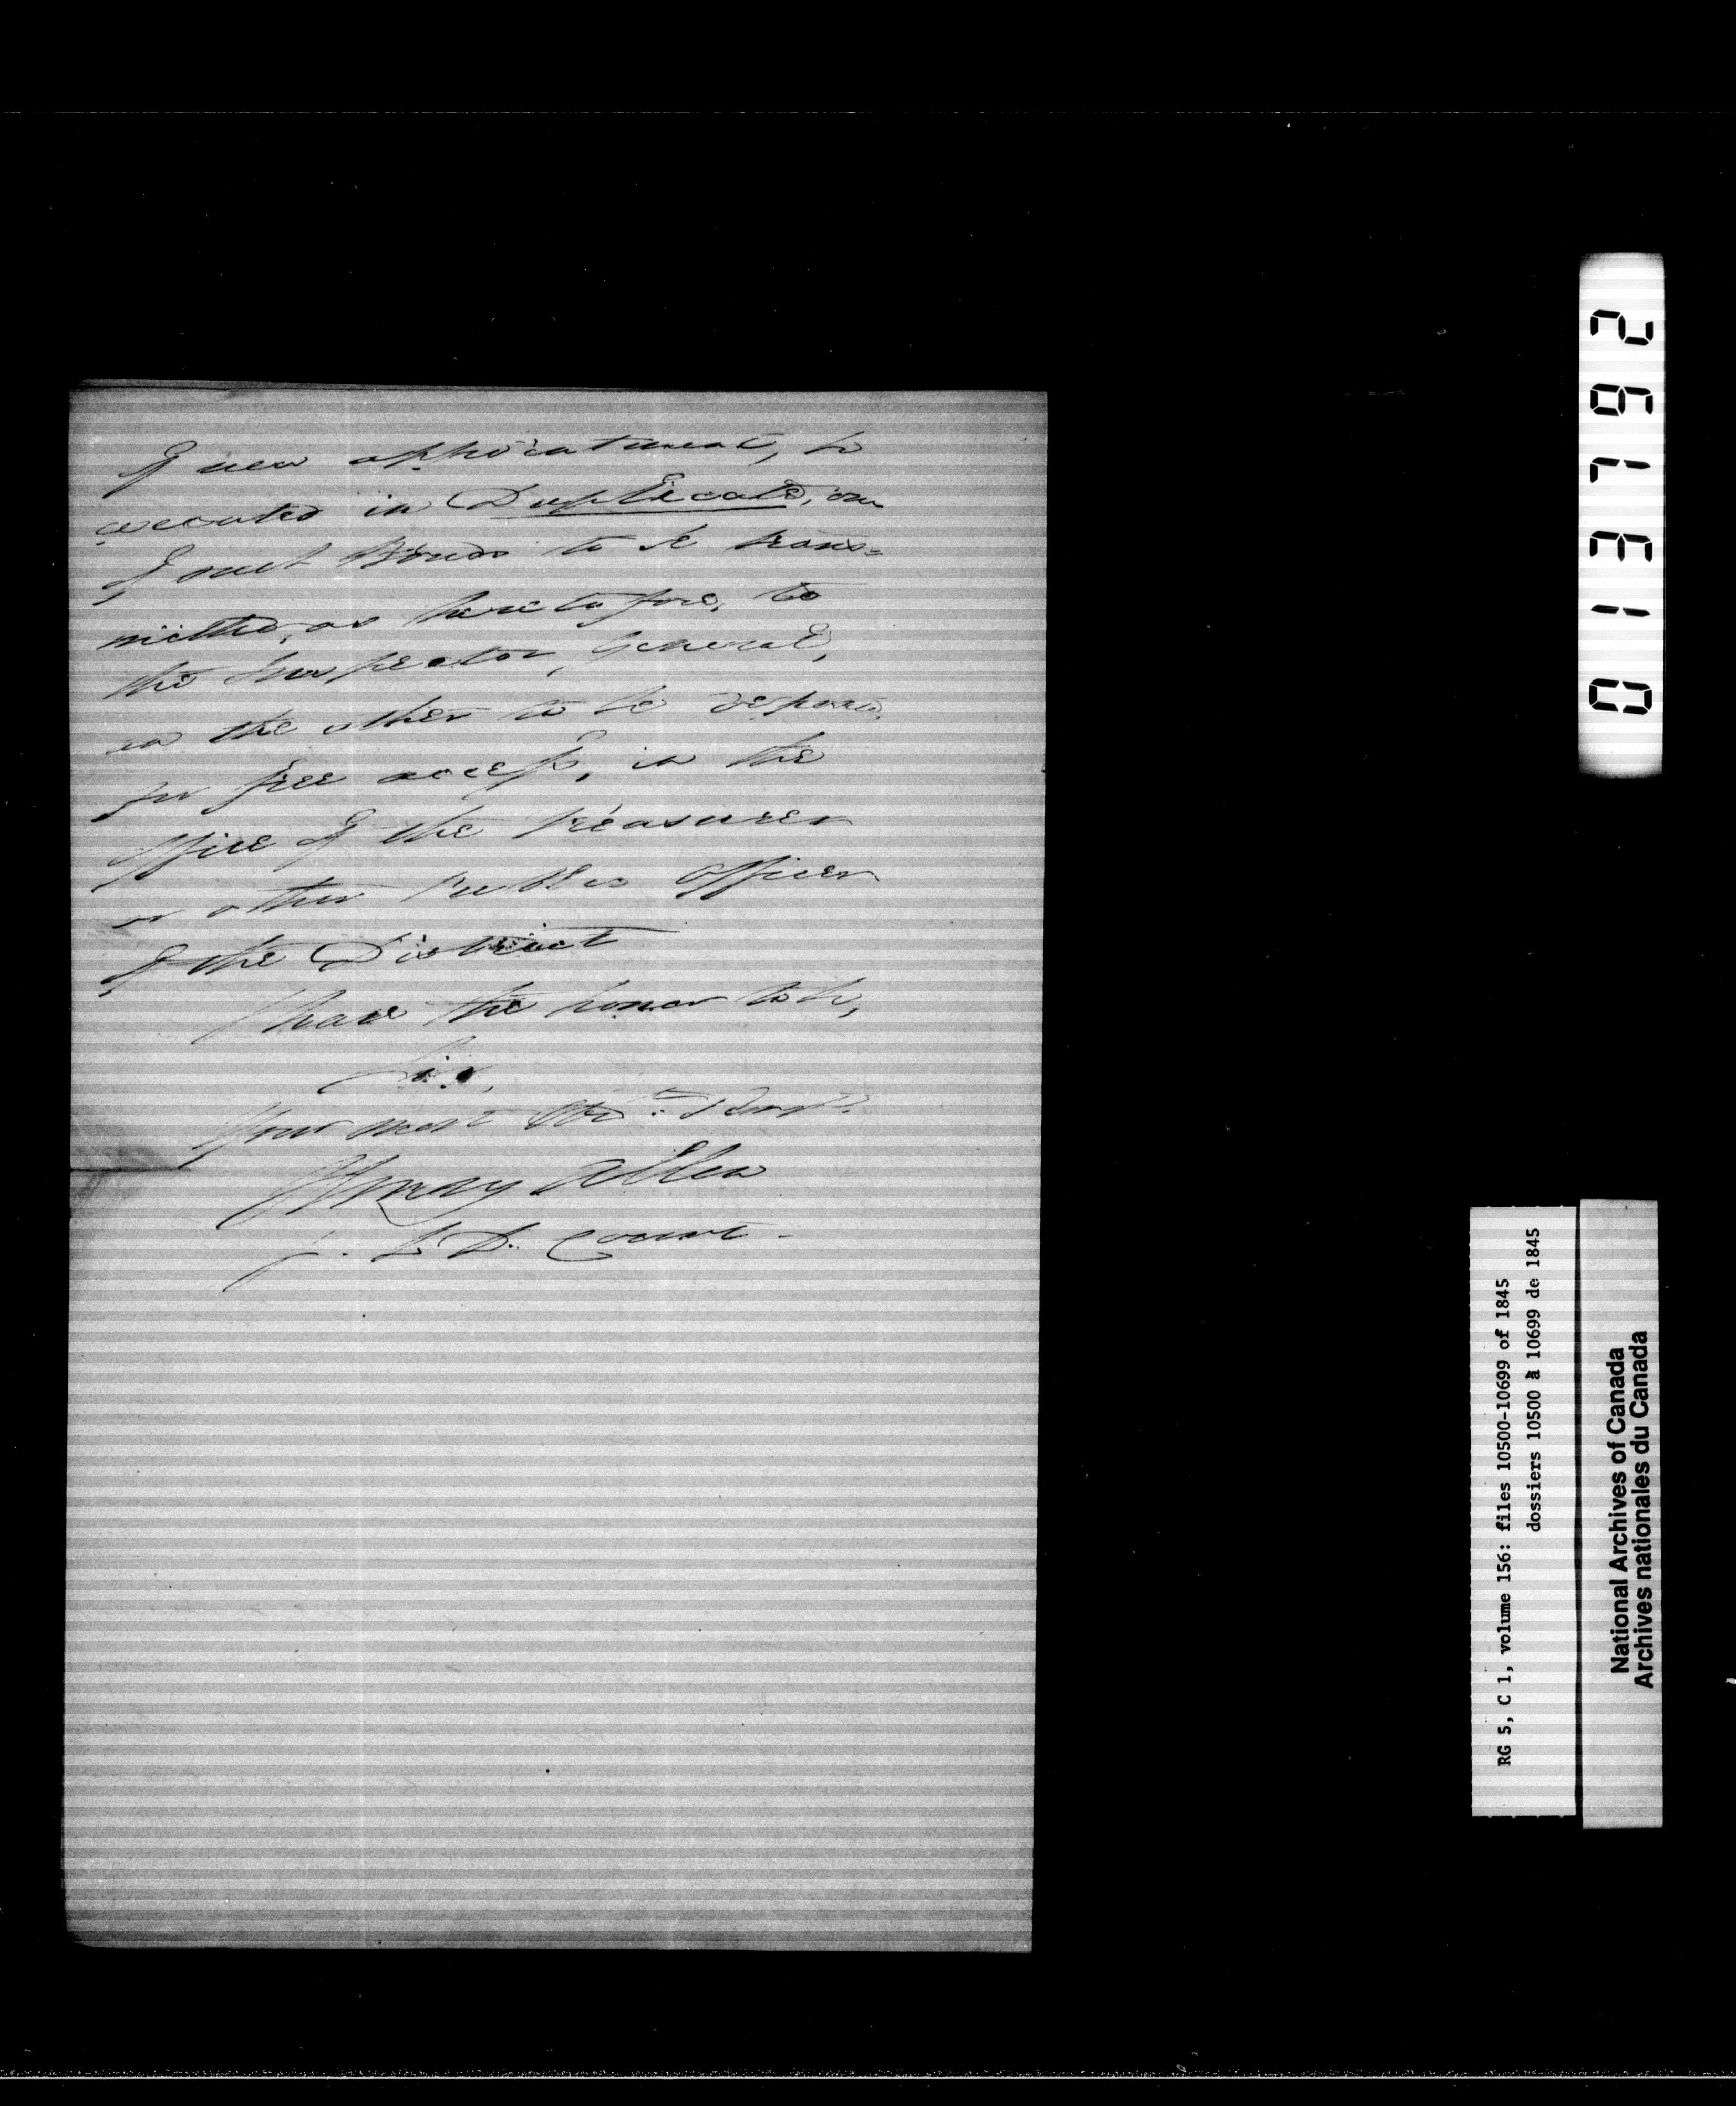 of new appointment, to
executed in Duplicate, one
of such Bonds to be trans=
mitted, as heretofore, to
the Inspector General,
the other to be
for free access, in the
office of the Treasurer
or other Public Officer
of the District
I have the honor to be,
Sir,
Your most Obt. Servt.
Henry Allen
J. L. D. Court.
013762
RG 5, C 1, volume 156: files 10500-10699 of 1845
dossiers 10500 à 10699 de 1845
National Archives of Canada
Archives nationales du Canada